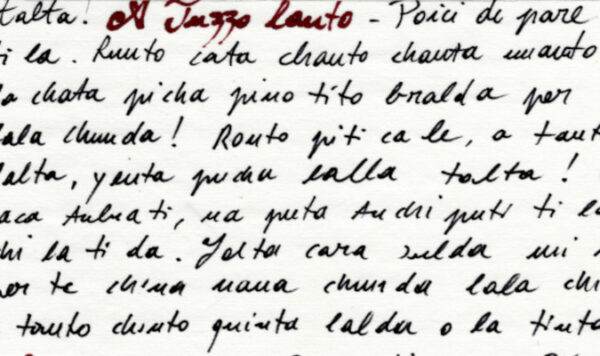 talta! A Tuzzo lanto - Poici di pare
ti la. Runto cata chanto chanta manto
la chata picha pino tito bralda per
lala chunda! Ronto piti ca le, a tant
lalta, yenta pucha lalla talta!
aca, na puta Anchi puti ti la
chi la ti da. Yalta cara mi
per te china nana chunda lala chi
tanto chinto quinta lalda o la tinta